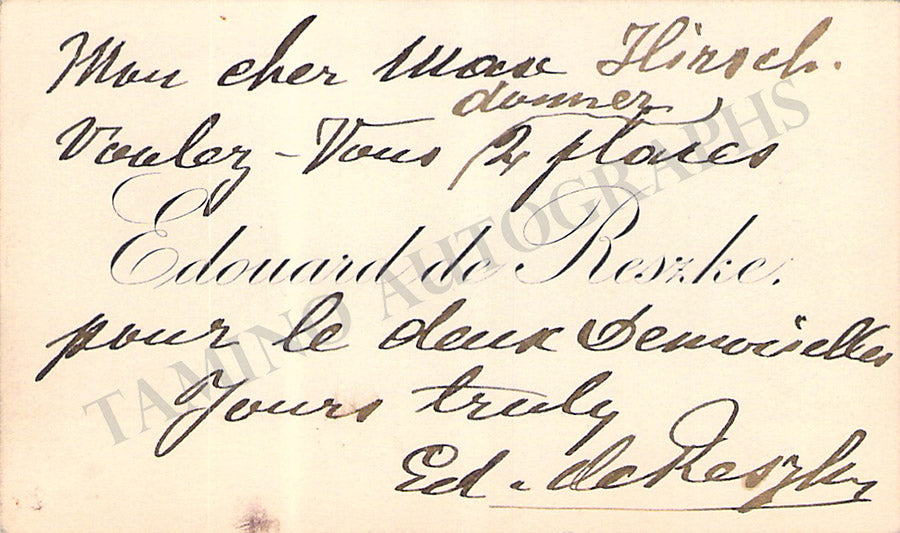 Mon cher Max Hirsch.
donner
Voulez-Vous 2 places
Edouard de Reszke.
pour le deux Demoiselles
Yours truly
Ed. de Reszke
TAMINO AUTOGRAPHS